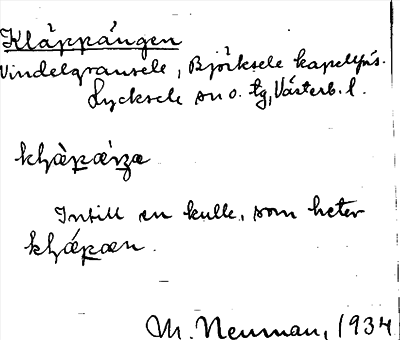 Kläppängen
Vindelgransele, Björksele kapellfs.
Lycksele sn o. tg, Västerb. l.
Intill en kulle, som heter
M. Neuman, 1934